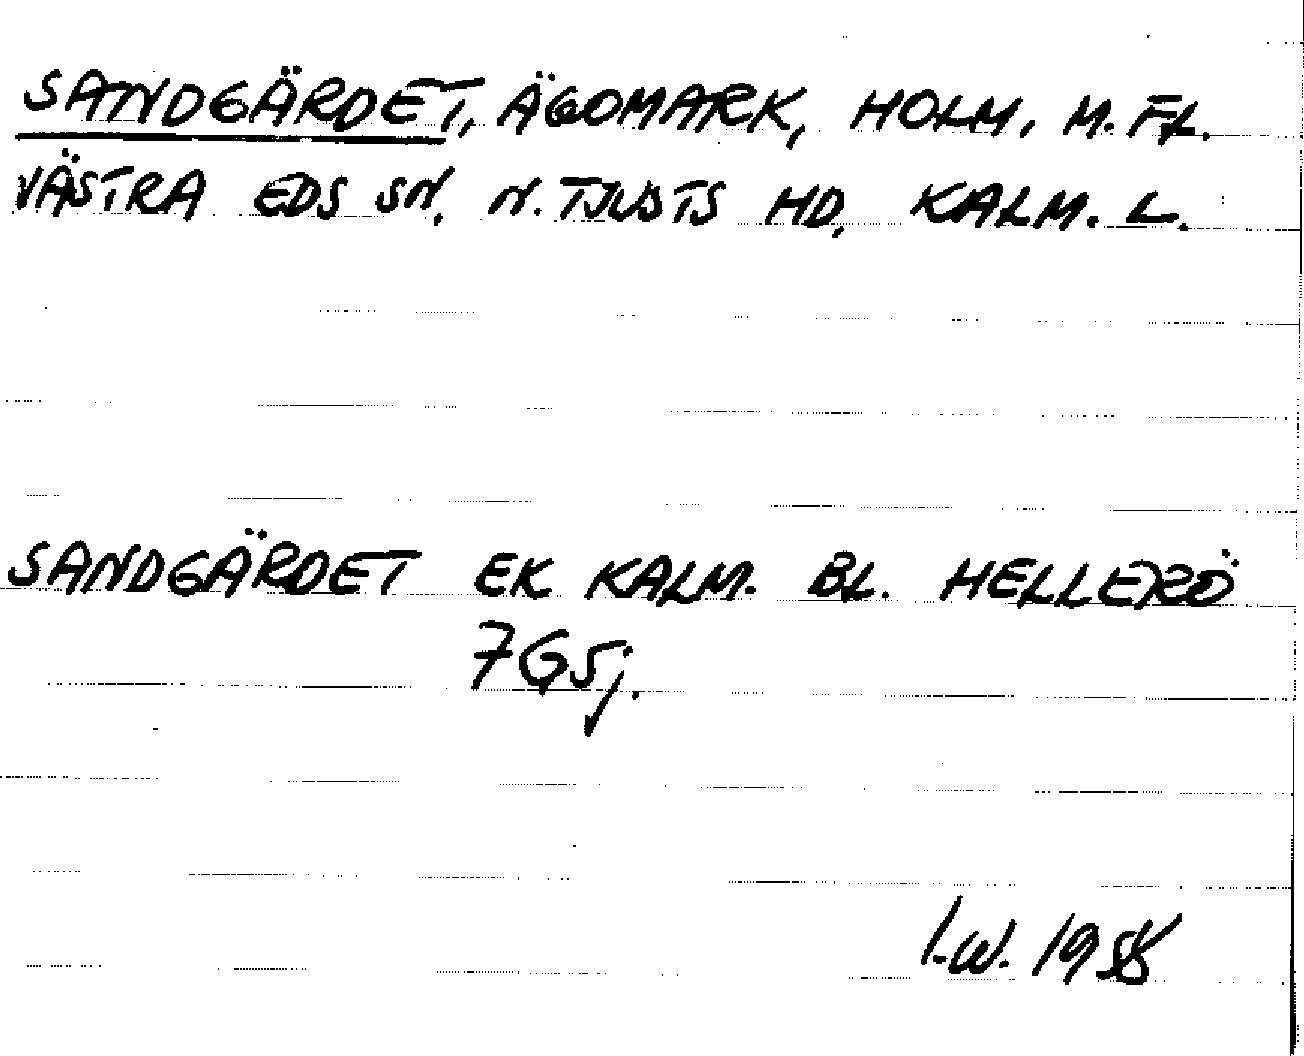 SANDGÄRDET, ÄGOMARK, HOLM, M. FL.
VÄSTRA EDS SN, N. TJUSTS HD, KALM. L.
SANDGÄRDET EK KALM. BL. HELLERÖ
7G5j.
I.W. 1958